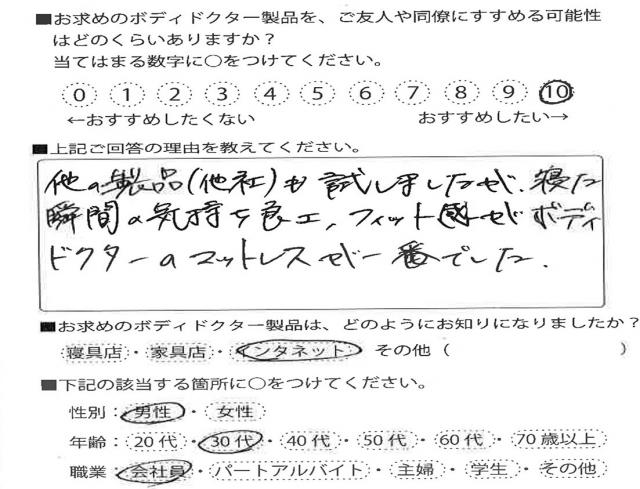 ■お求めのボディドクター製品を、ご友人や同僚にすすめる可能性
はどのくらいありますか？
当てはまる数字に○をつけてください。
0 1 2 3 4 5 6 7 8 9 10
←おすすめしたくない おすすめしたい→
■上記ご回答の理由を教えてください。
他の製品(他社)も試しましたが、寝た
瞬間の気持ち良エ、フィット感がボディ
ドクターのマットレスが一番でした.
■お求めのボディドクター製品は、どのようにお知りになりましたか？
寝具店・家具店・インタネット その他（ ）
■下記の該当する箇所に○をつけてください。
性別：男性・女性
年齢：20代・30代・40代・50代・60代・70歳以上
職業：会社員・パートアルバイト・主婦・学生・その他